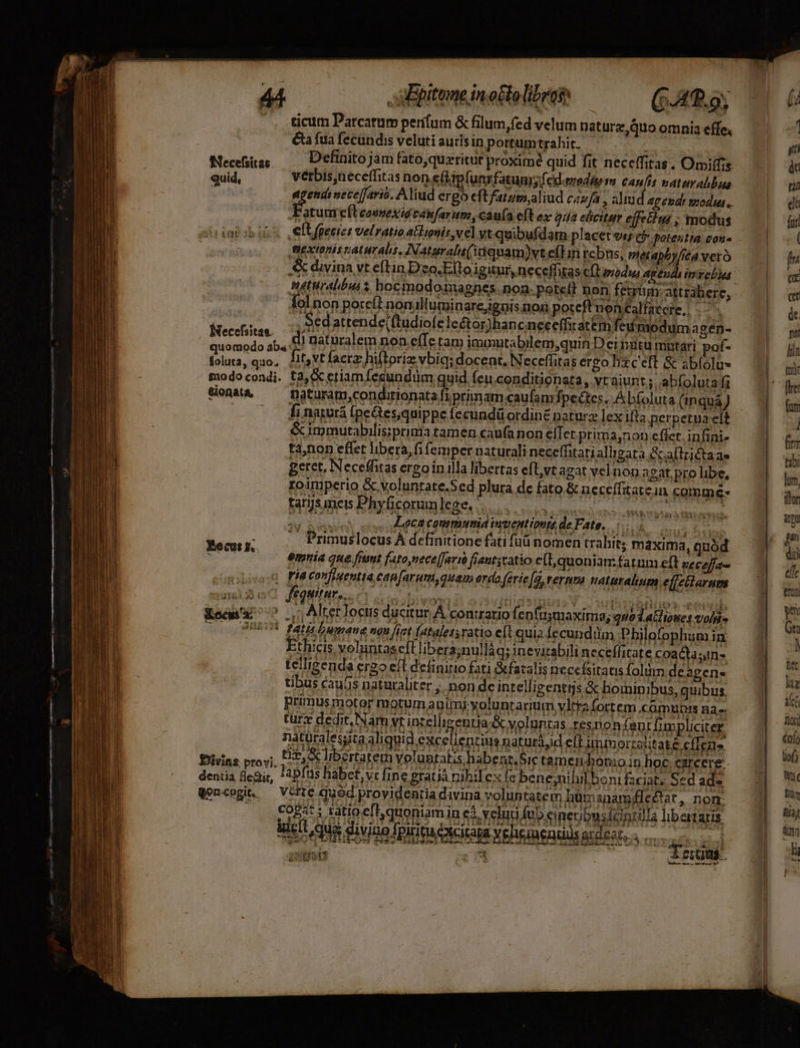 44 Epitome in octo libros
ticum Parcarum pensum & filum, sed velum naturæ, quo omnia effe-
cta sua secundis veluti auris in portum trahit.
Necessitas quid, Definito jam fato, quæritur proximè quid sit necessitas. Omissis
verbis, necessitas non est ipsum fatum; sed modus causis naturalibus
agendi necessario. Aliud ergò est fatum, aliud causa, aliud agendi modus.
Fatum est connexio causarum, causa est ex qua elicitur effectus; modus
est species vel ratio actionis, vel vt quibusdam placet vis & potentia con-
nexionis naturalis. Naturalis (inquam) vt est in rebus, metaphysica verò
& divina vt est in Deo. Esto igitur, necessitas est modus agendi in rebus
naturalibus: hoc modo magnes non potest non ferrum attrahere,
sol non potest non illuminare, ignis non potest non calfacere.
Necesitas quomodo absoluta, quo modo conditionata, Sed attende (studiose lector) hanc necessitatem seu modum agen-
di naturalem non esse tam immutabilem, quin Dei nutu mutari pos-
sit, vt sacræ historiæ vbiq; docent. Necessitas ergo hæc est & absolu-
ta, & etiam secundùm quid seu conditionata, vt aiunt; absoluta si
naturam, conditionata si primam causam spectes. Absoluta (inquã)
si naturã spectes, quippe secundũ ordinẽ naturæ lex ista perpetua est
& immutabilis; prima tamen causa non esset prima, non esset infini-
ta, non esset libera, si semper naturali necessitati alligata & astricta a-
geret. Necessitas ergo in illa libertas est, vt agat vel non agat pro libe-
ro imperio & voluntate. Sed plura de fato & necessitate in commē-
tarijs meis Physicorum lege.
Loca communia inventionis de Fato.
Locus 1. Primus locus A definitione fati suũ nomen trahit; maxima, quòd
omnia quæ fiunt fato, necessario fiant; ratio est, quoniam fatum est necessa-
ria confluentia causarum, quam ordo serieſq; rerum naturalium effectarum
sequitur.
Locus 2. Alter locus ducitur A contrario sensu; maxima, quòd actiones volũ-
tatis humanæ non sint fatales; ratio est quia secundùm Philosophum in
Ethicis voluntas est libera; nullàq; inevitabili necessitate coacta; in-
telligenda ergo est definitio fati & fatalis necesitatis solùm de agen-
tibus causis naturaliter, non de intelligentijs & hominibus, quibus
primus motor motum animi voluntarium vltra sortem cõmunis na-
turæ dedit. Nam vt intelligentia & voluntas res non sunt simpliciter
naturales; ita aliquid excellentius naturâ, id est immortalitatē essen-
Divina providentia flectit, non cogit. tiæ, & libertatem voluntatis habent. Sic tamen homo in hoc carcere
lapsus habet, vt sine gratiâ nihil ex se bene, nihil boni faciat. Sed ad-
verte quòd providentia divina voluntatem humanam flectat, non
cogat; ratio est, quoniam in eâ, veluti sub cineribus scintilla libertatis
inest, quæ divino spiritu excitata vehementiùs ardeat.
Tertius